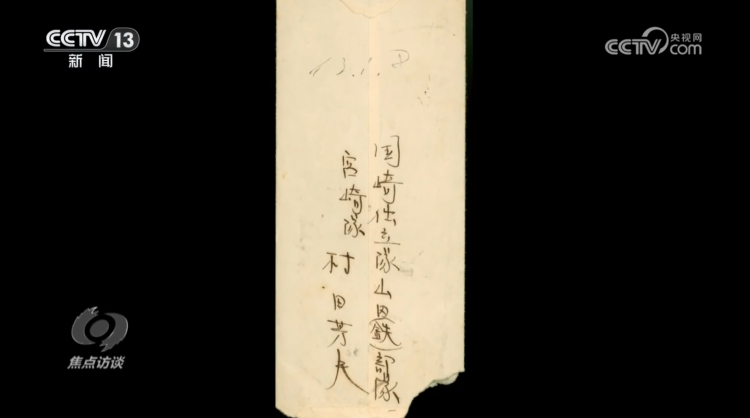 CCTV 13
新闻
央视网
CCTV.com
13.1.8
国崎支隊山田(鉄)部隊
宮崎隊 村田芳夫
焦点访谈